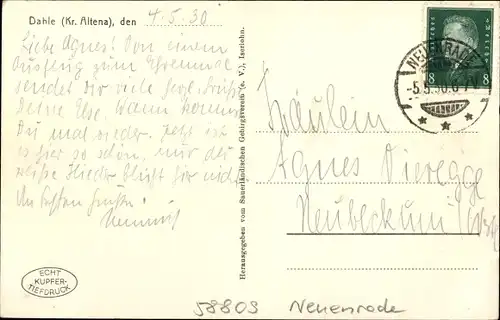 Dahle (Kr. Altena), den 4.5.30
Liebe Agnes! Von einem
Ausflug zum Ehrenmal
sendet Dir viele herzl. Grüße
Deine Else. Wann kommst
Du mal wieder. Jetzt ist
es hier so schön, nur der
weiße Flieder blüht hier nicht
Heinrich
ECHT
KUPFER-
TIEFDRUCK
Herausgegeben vom Sauerländischen Gebirgsverein (e. V.), Iserlohn.
Deutsches Reich
8 8
NEUENRADE
-5.5.30.
Fräulein
Agnes Vieregge
Neubeckum
58809 Neuenrade